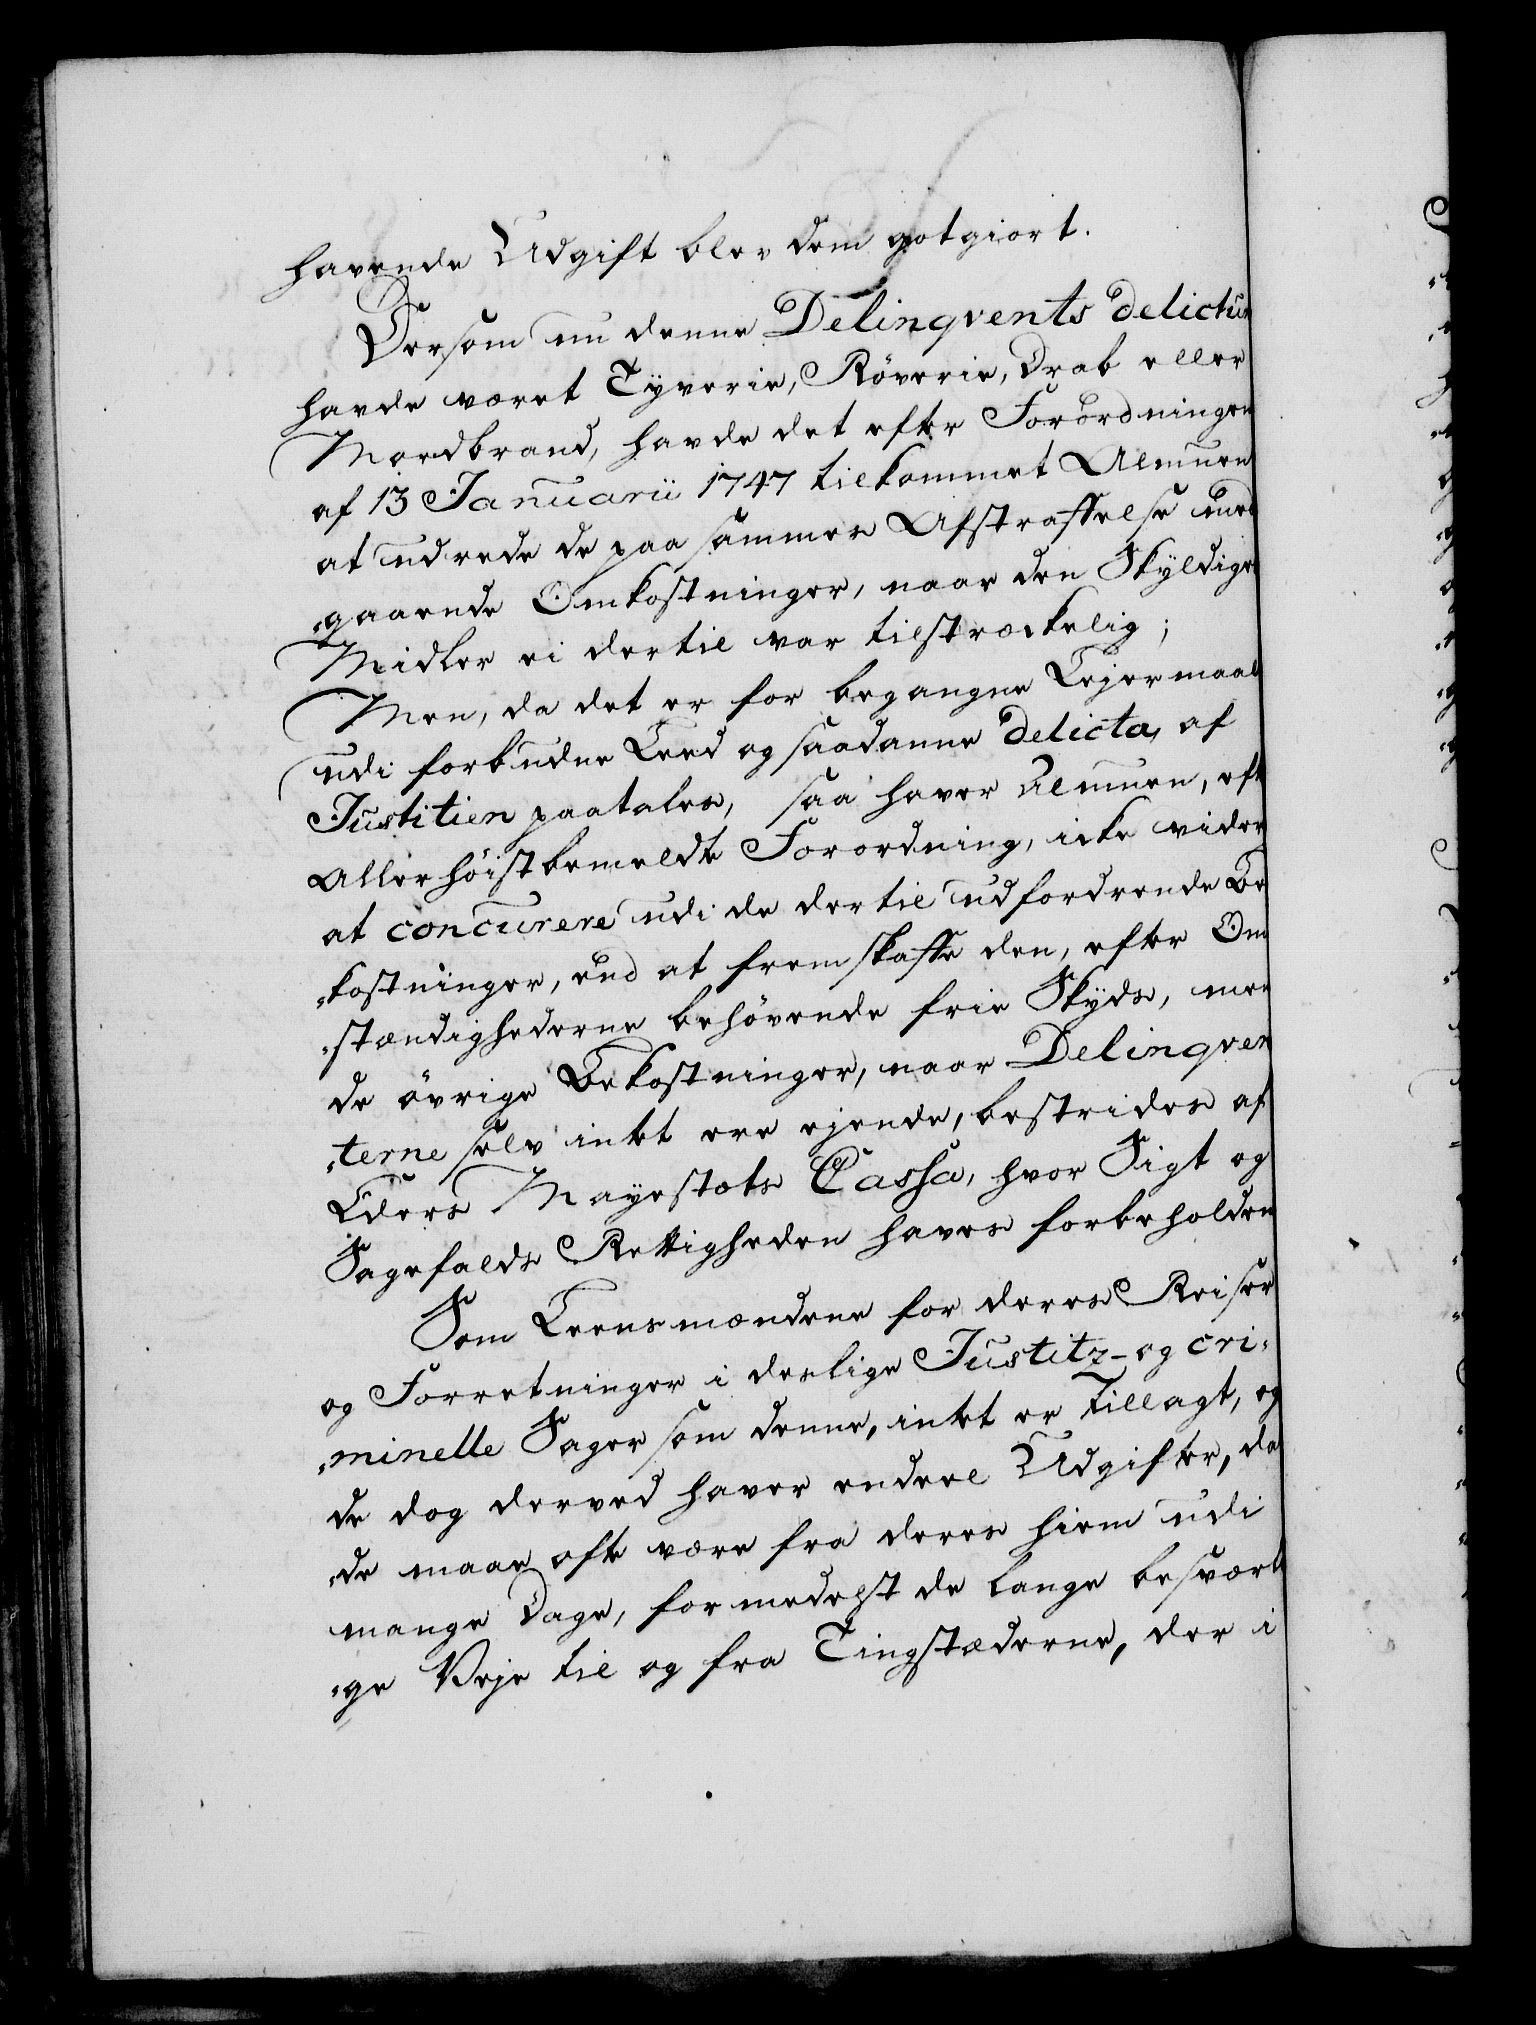 havende Udgift blev dem gotgiort.
Dersom nu denne Delinqvents delictum
havde været Tÿverie, Röverie, Drab eller
Mordbrand, havde det efter Forordningen
af 13 Januarii 1747 tilkommet Almuen
at udrede de paa sammes Afstraffelse med
"gaaende Omkostninger, naar den Skÿldiges
Midler ei dertil var tilstrækkelig;
Men, da det er for begangne Lejermaal
udi forbudne Leed og saadanne delicta, af
Justitien paatales, saa haver Almuen, efter
Allerhöistbemeldte Forordning, icke videre
at concurere udi de dertil udfordrende Be
"kostninger, end at fremskaffe den, efter Om
"stændighederne behövende frie Skÿds, men
de övrige Bekostninger, naar Delinqven
"terne selv intet ere ejende, bestrides af
Eders Mayestæts Cassa, hvor Sigt og
Sagefalds Rettigheden haves forbeholden
Som Leensmændene for deres Reiser
og Forretninger i deslige Justitz- og cri"
"minelle Sager som denne, intet er tillagt, og
de dog derved haver endeel Udgifter, da
"de maae ofte være fra deres hiem udi
mange Dage, formedelst de lange besværli
"ge Veje til og fra Tingstæderne, der i